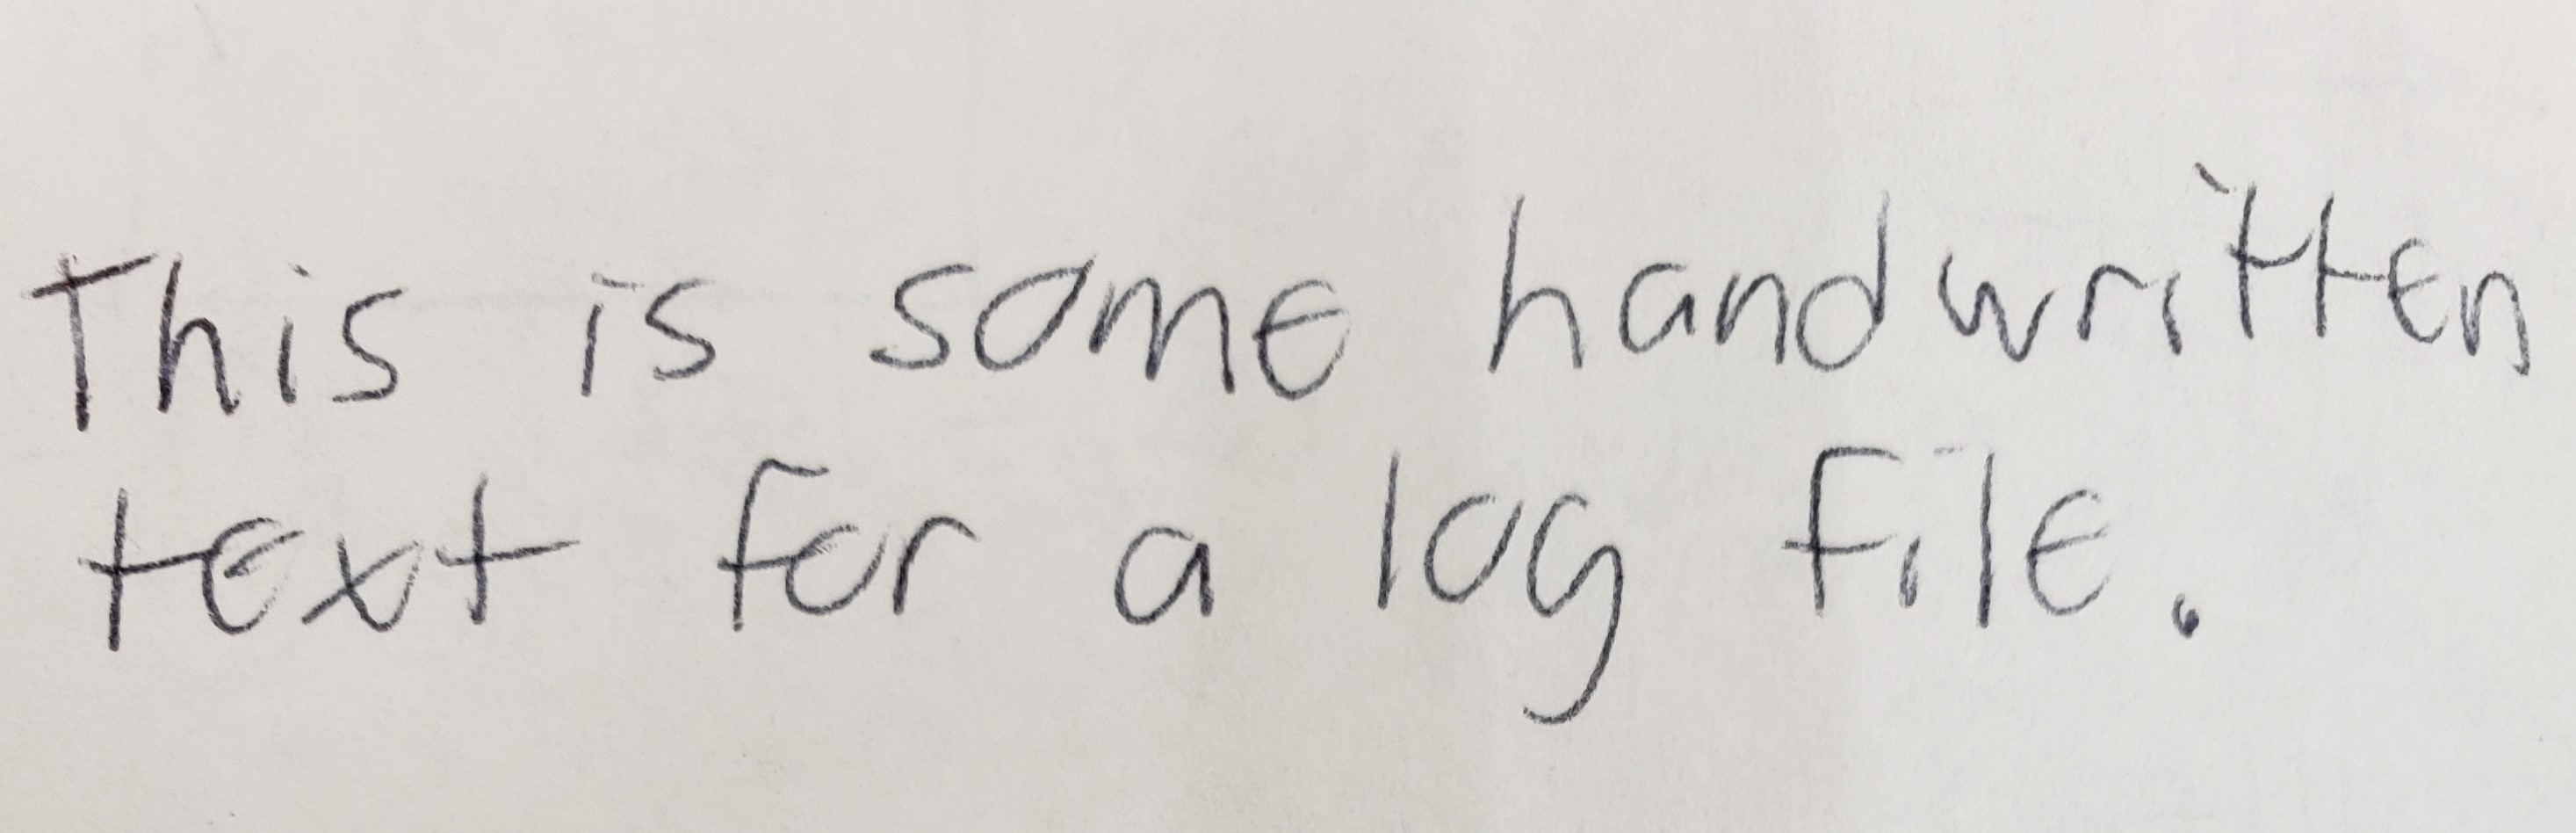 This is some handwritten
text for a log file.